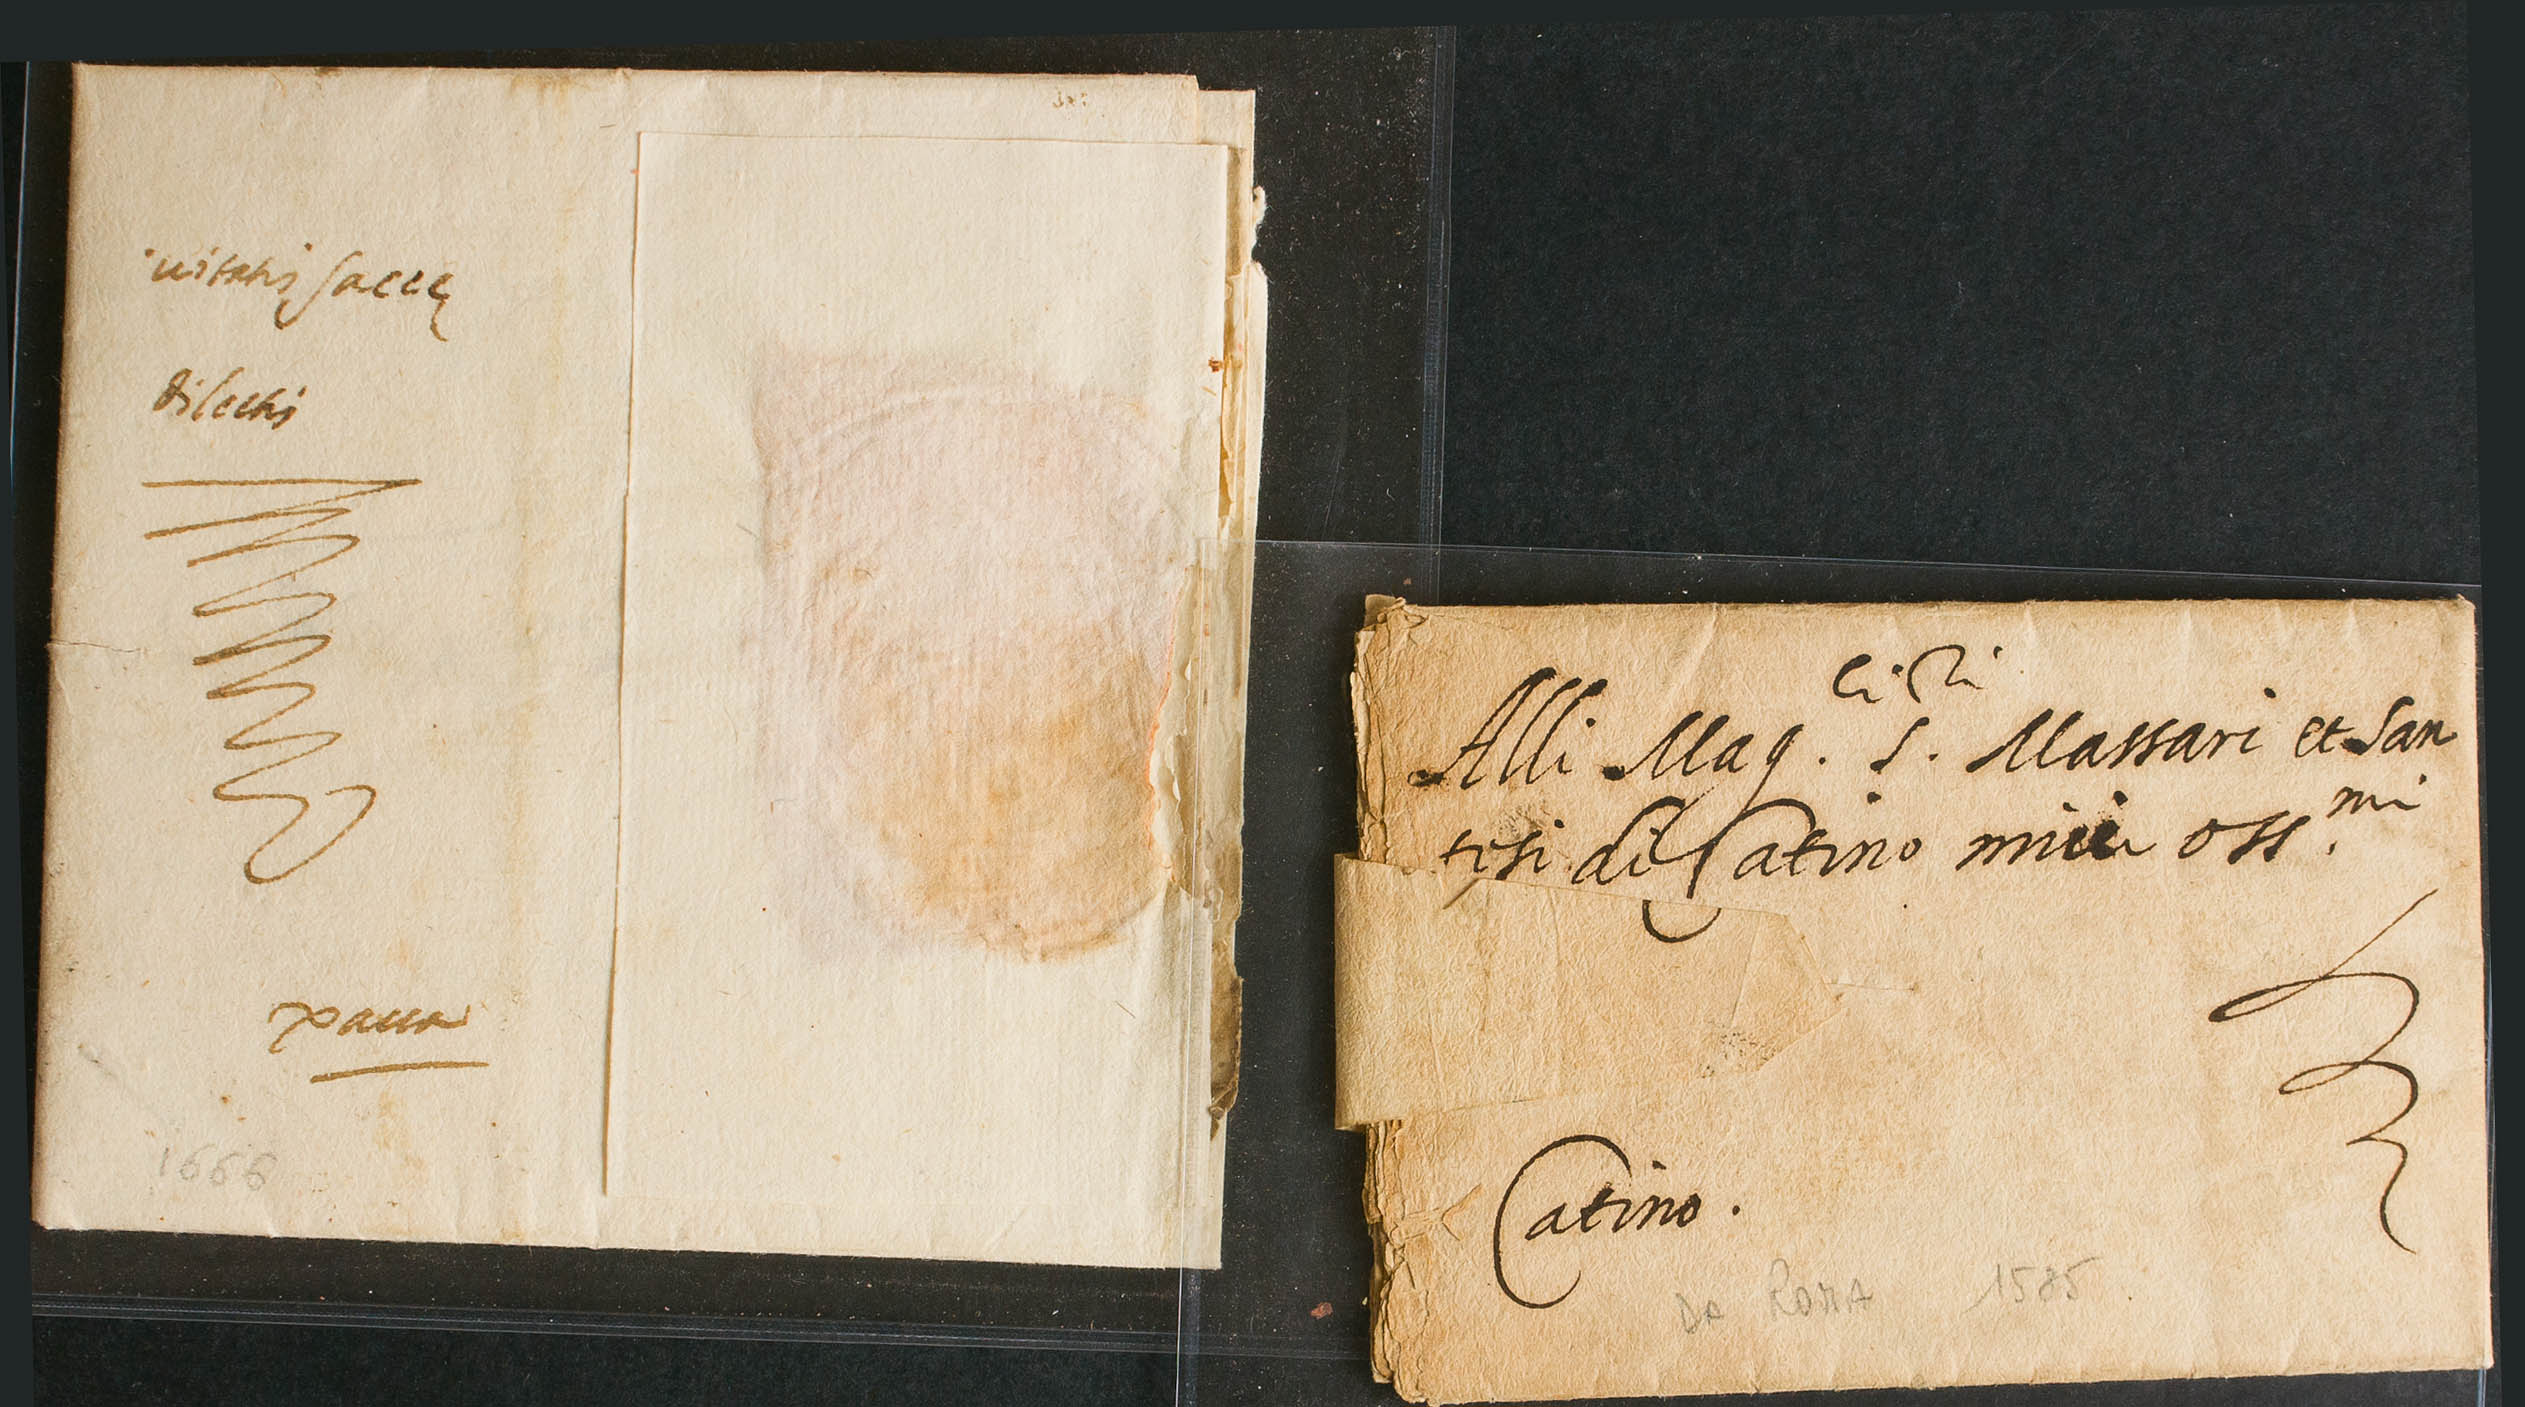 dilectis
1666
Alli Mag.ci S.ri Massari et San
tesi di Catino miei oss.mi
Catino.
Da Roma 1585